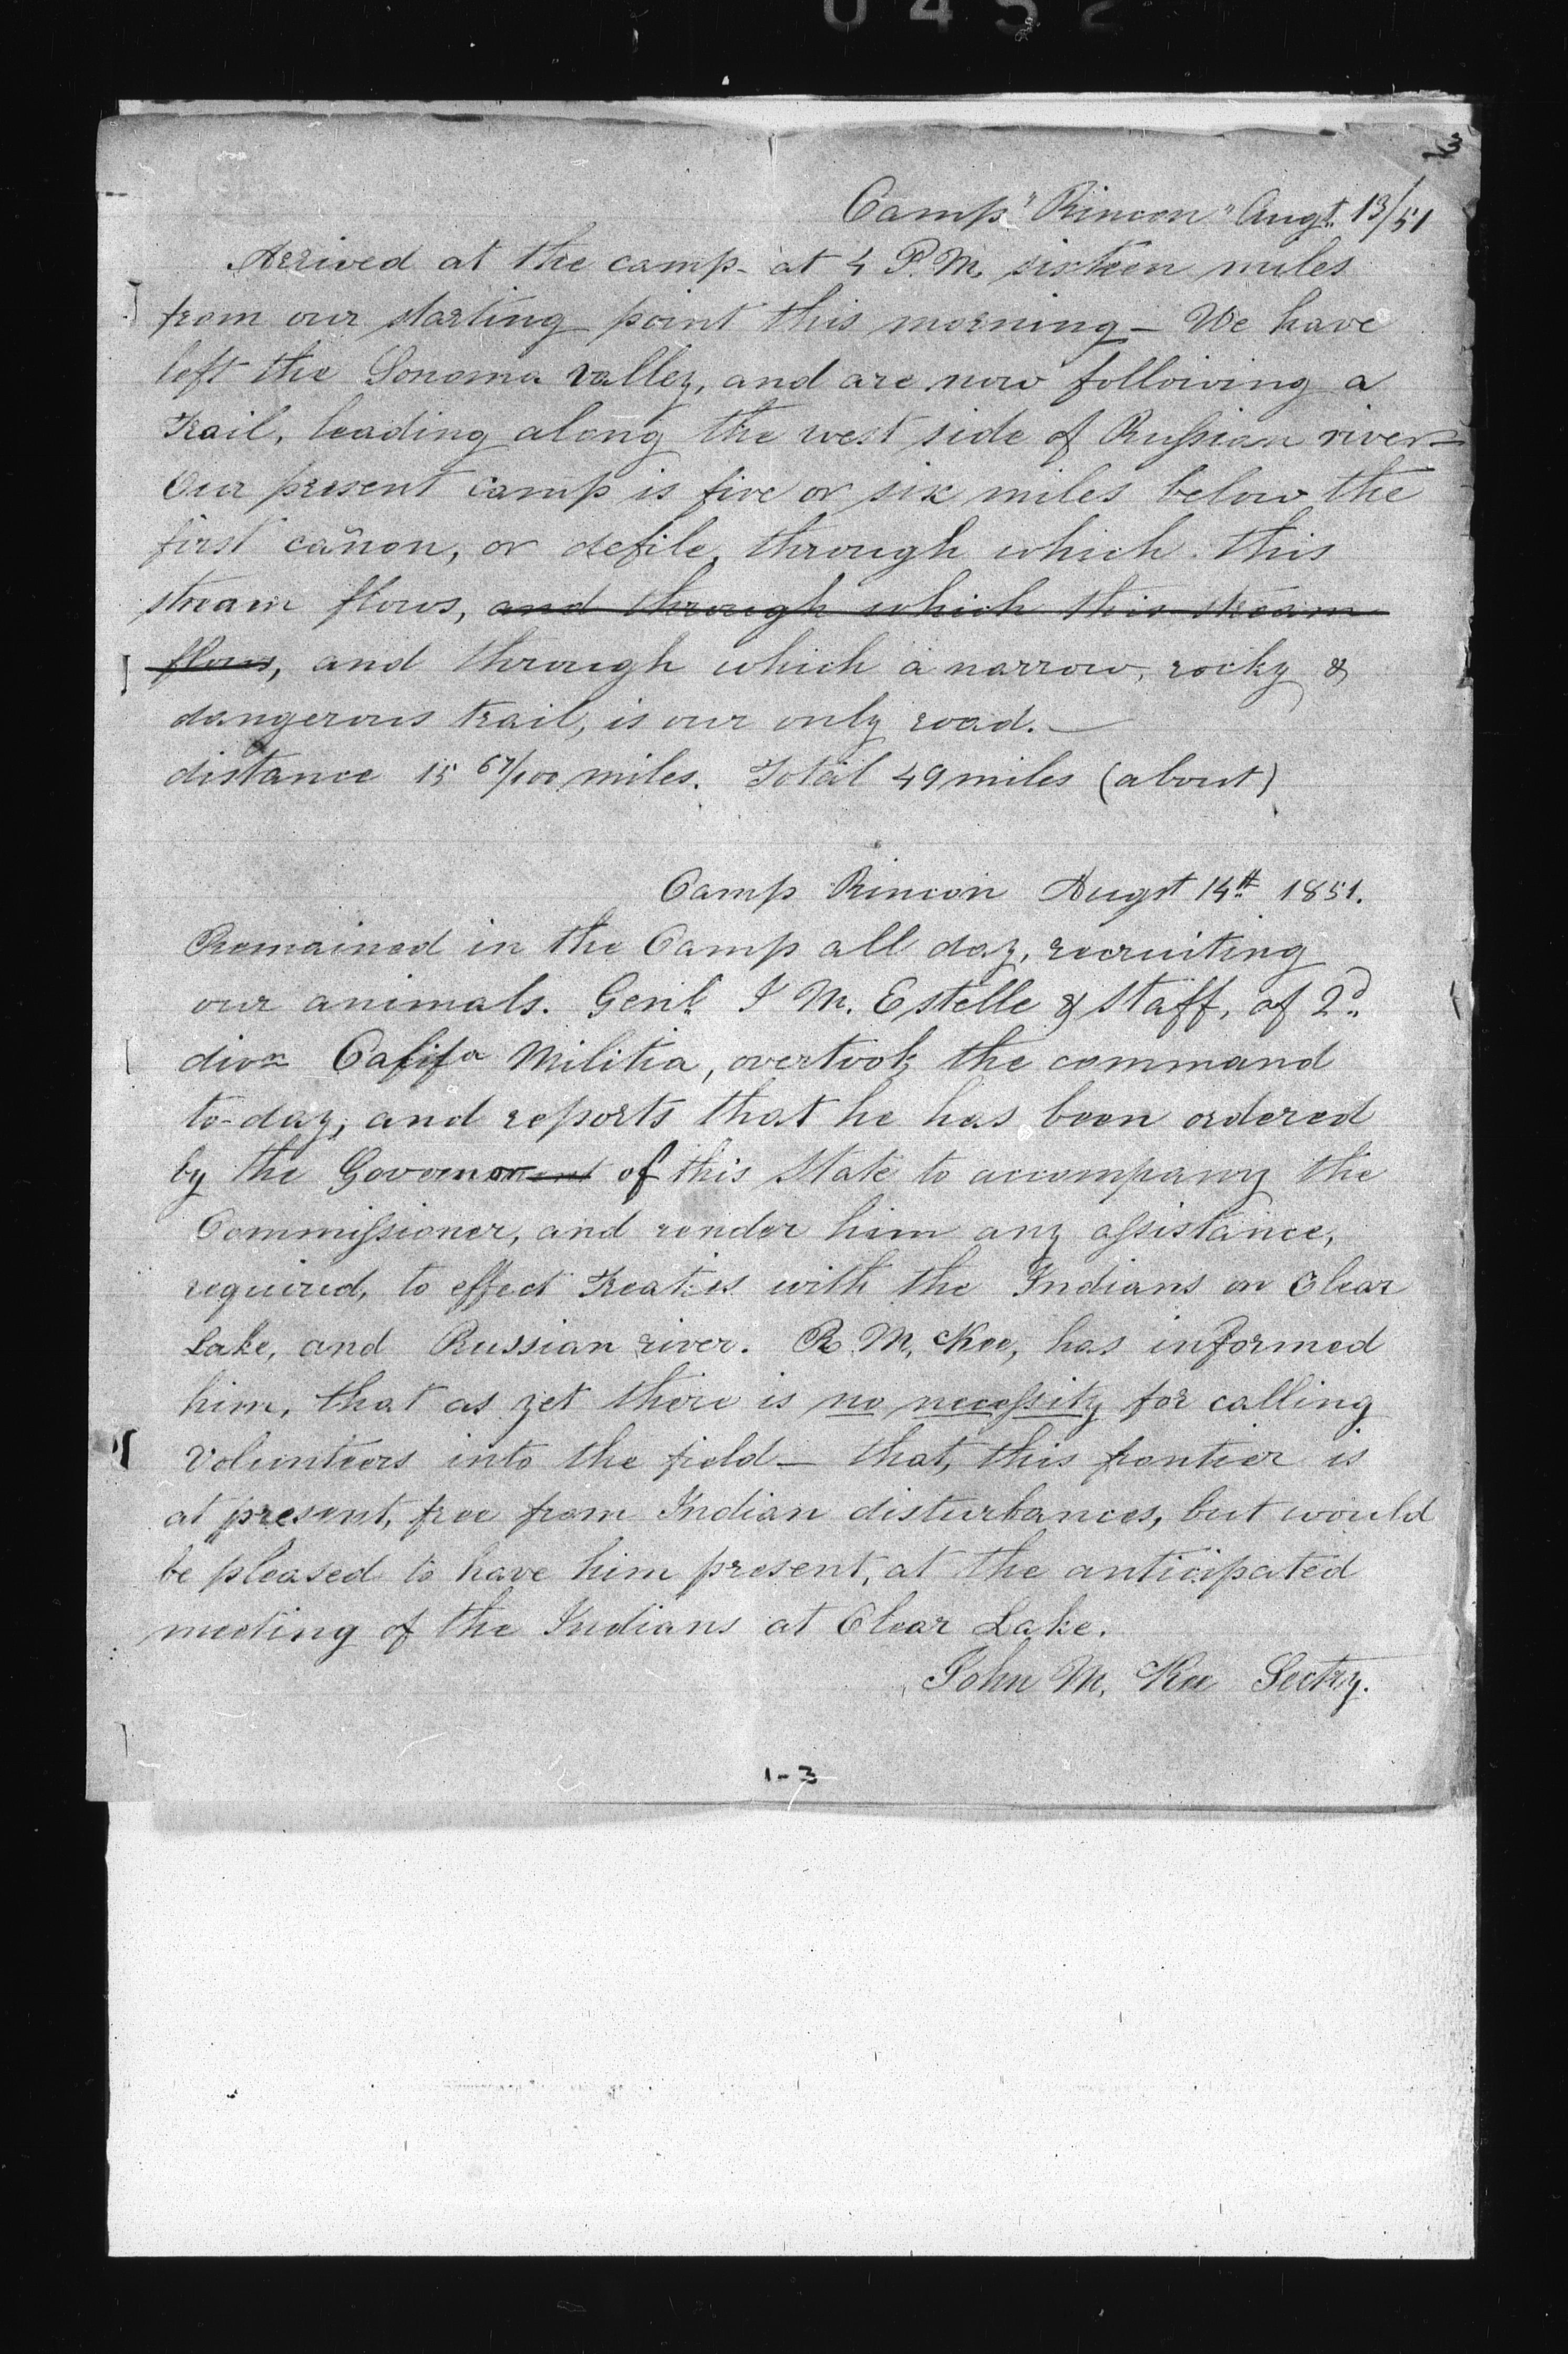 0452
3
Camp "Rincon" Augt. 13/51
Arrived at the camp- at 4 P.M. sixteen miles
from our starting point this morning – We have
left the Sonoma valley, and are now following a
Trail, leading along the west side of Russian river –
Our present camp is five or six miles below the
first cañon, or defile, through which this
stream flows, and through which this stream
flows, and through which a narrow, rocky &
dangerous trail, is our only road. —
distance 15 67/100 miles. Total 49 miles (about)
Camp Rincon Augst 14th 1851.
Remained in the Camp all day, recruiting
our animals. Genl. J M. Estelle & staff, of 2d.
divn Califa Militia, overtook the command
to-day; and reports that he has been ordered
by the Governor of this State to accompany the
Commissioner, and render him any assistance,
required, to effect Treaties with the Indians on Clear
Lake, and Russian river. R. M, cKee, has informed
him, that as yet there is no necessity for calling
Volunteers into the field – that, this frontier is
at present, free from Indian disturbances, but would
be pleased to have him present, at the anticipated
meeting of the Indians at Clear Lake.
John M, cKee Sectry.
1-3